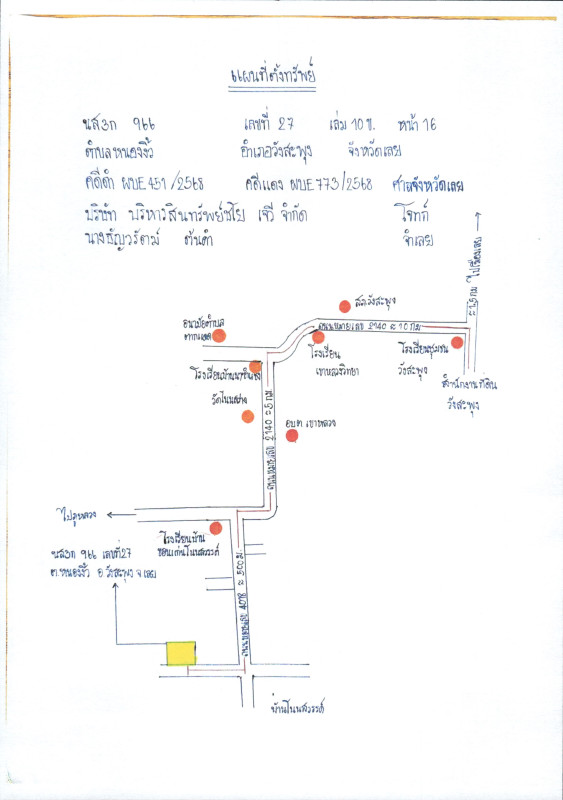 แผนที่ตั้งทรัพย์
นส3ก 966 เลขที่ 27 เล่ม 10 ข. หน้า 16
ตำบลหนองงิ้ว อำเภอวังสะพุง จังหวัดเลย
คดีดำ ผบE 451/2568 คดีแดง ผบE 773/2568 ศาลจังหวัดเลย
บริษัท บริหารสินทรัพย์ชโย เจวี จำกัด โจทก์
นางธัญวรัตม์ ต้นดำ จำเลย
≈ 1.5 กม ไปเมืองเลย
สภ.วังสะพุง
ถนนหมายเลข 2140 ≈ 1.0 กม
อนามัยตำบล
โรงเรียน
เขาหลวงวิทยา
โรงเรียนชุมชน
วังสะพุง
สำนักงานที่ดิน
วังสะพุง
วัดโนนสว่าง
ถนนหมายเลข 2140 ≈ 5 กม.
อบต เขาหลวง
ไปภูหลวง
โรงเรียนบ้าน
ขอนแก่นโนนสวรรค์
นส3ก 966 เลขที่ 27
ต.หนองงิ้ว อ วังสะพุง จ เลย
ถนนหมายเลข 4018 ≈ 500 ม
บ้านโนนสวรรค์